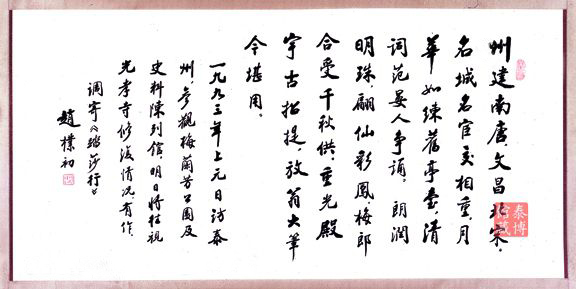 州建南唐，文昌北宋，
名城名宦交相重。月
華如練舊亭臺，清
词范晏人争誦。朗潤
明珠，翩仙彩鳳，梅郎
合受千秋供。重光殿
宇古招提，放翁大筆
今堪用。
一九九三年上元日访泰
州，参觀梅蘭芳公園及
史料陳列館，明日將往視
光孝寺修復情况，有作
调寄《踏莎行》
趙樸初
泰博
館藏